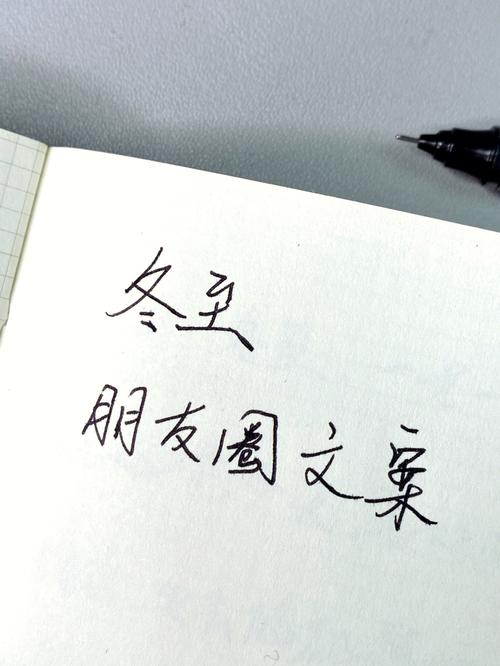 冬至
朋友圈文案